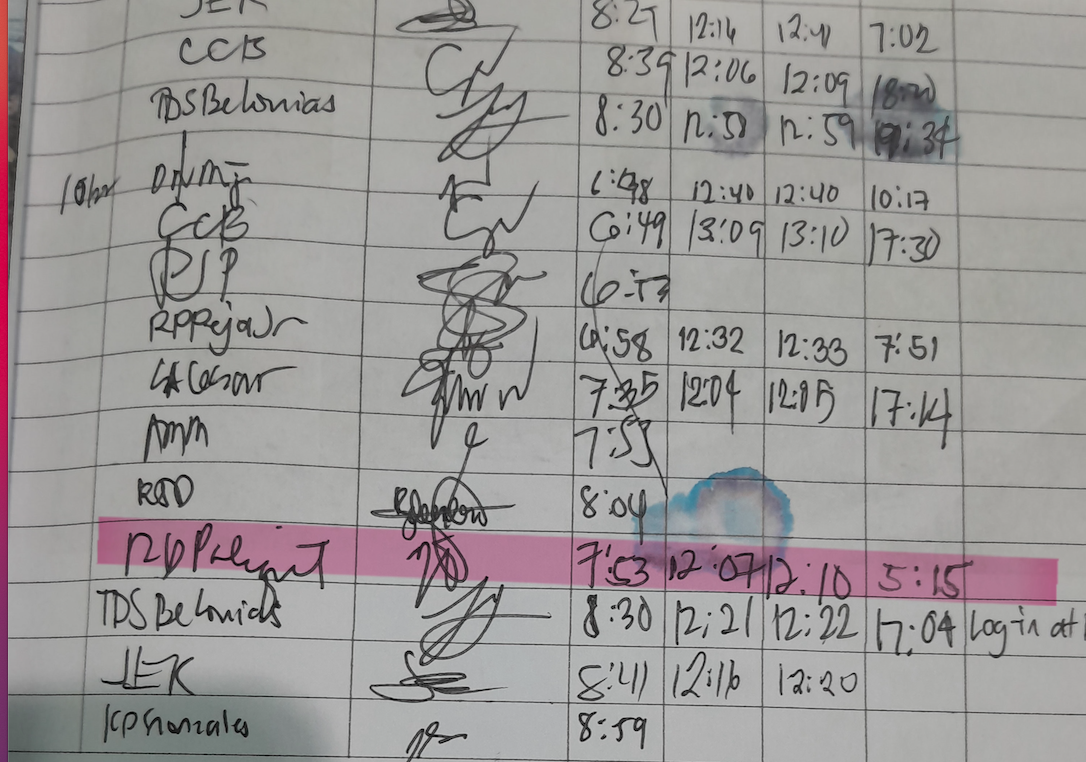 JEK 8:27 12:16 12:41 7:02
CCB 8:39 12:06 12:09
TDSBelonias 8:30 12:58 12:59 19:34
12:40 12:40 10:17
CCB 6:49 13:09 13:10 17:30
PSP 6:53
6:58 12:32 12:33 7:51
7:35 12:04 12:05 17:14
AMM 7:53
8:04
7:53 12:07 12:10 5:15
TDSBelonias 8:30 12:21 12:22 17:04 Log-in at
JEK 8:41 12:16 12:20
KPGonzales 8:59